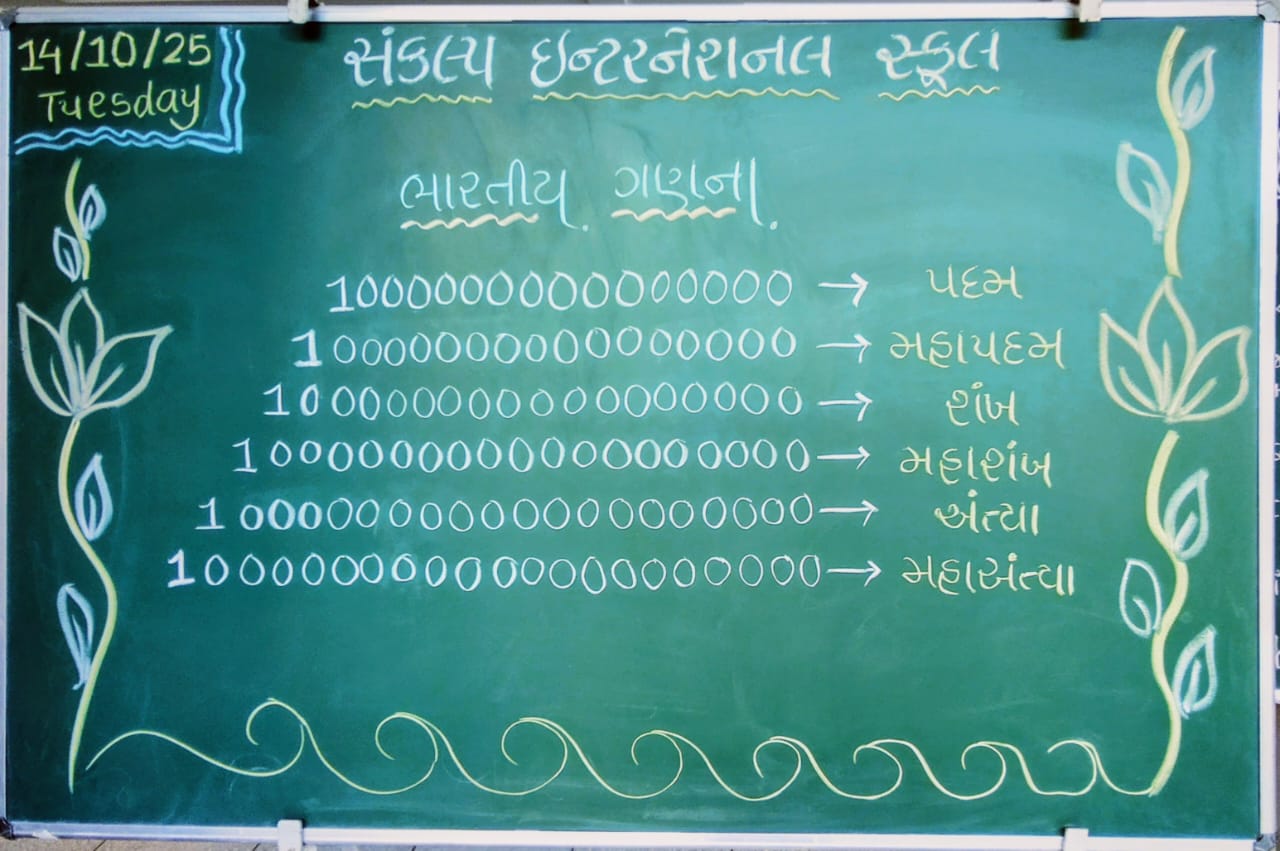 14/10/25
Tuesday
સંકલ્પ ઇન્ટરનેશનલ સ્કૂલ
ભારતીય ગણના
1000000000000000 → પદમ
10000000000000000 → મહાપદમ
100000000000000000 → શંખ
1000000000000000000 → મહાશંખ
10000000000000000000 → અંત્યા
100000000000000000000 → મહાઅંત્યા